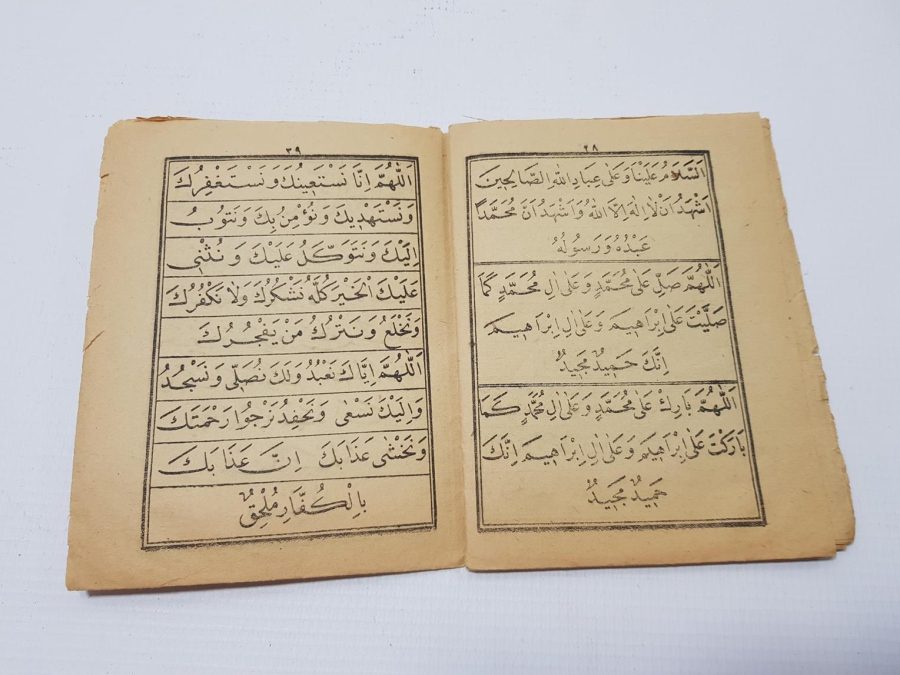 ٢٨
اَلسَّلَامُ عَلَيْنَا وَعَلٰى عِبَادِ اللّٰهِ الصَّالِحِينَ
اَشْهَدُ اَنْ لَا اِلٰهَ اِلَّا اللّٰهُ وَاَشْهَدُ اَنَّ مُحَمَّدًا
عَبْدُهُ وَرَسُولُهُ
اَللّٰهُمَّ صَلِّ عَلٰى مُحَمَّدٍ وَعَلٰى اٰلِ مُحَمَّدٍ كَمَا
صَلَّيْتَ عَلٰى اِبْرَاهِيمَ وَعَلٰى اٰلِ اِبْرَاهِيمَ
اِنَّكَ حَمِيدٌ مَجِيدٌ
اَللّٰهُمَّ بَارِكْ عَلٰى مُحَمَّدٍ وَعَلٰى اٰلِ مُحَمَّدٍ كَمَا
بَارَكْتَ عَلٰى اِبْرَاهِيمَ وَعَلٰى اٰلِ اِبْرَاهِيمَ اِنَّكَ
حَمِيدٌ مَجِيدٌ
٣٩
اَللّٰهُمَّ اِنَّا نَسْتَعِينُكَ وَنَسْتَغْفِرُكَ
وَنَسْتَهْدِيكَ وَنُؤْمِنُ بِكَ وَنَتُوبُ
اِلَيْكَ وَنَتَوَكَّلُ عَلَيْكَ وَنُثْنِى
عَلَيْكَ الْخَيْرَ كُلَّهُ نَشْكُرُكَ وَلَا نَكْفُرُكَ
وَنَخْلَعُ وَنَتْرُكُ مَنْ يَفْجُرُكَ
اَللّٰهُمَّ اِيَّاكَ نَعْبُدُ وَلَكَ نُصَلِّى وَنَسْجُدُ
وَاِلَيْكَ نَسْعٰى وَنَحْفِدُ نَرْجُوا رَحْمَتَكَ
وَنَخْشٰى عَذَابَكَ اِنَّ عَذَابَكَ
بِالْكُفَّارِ مُلْحِقٌ